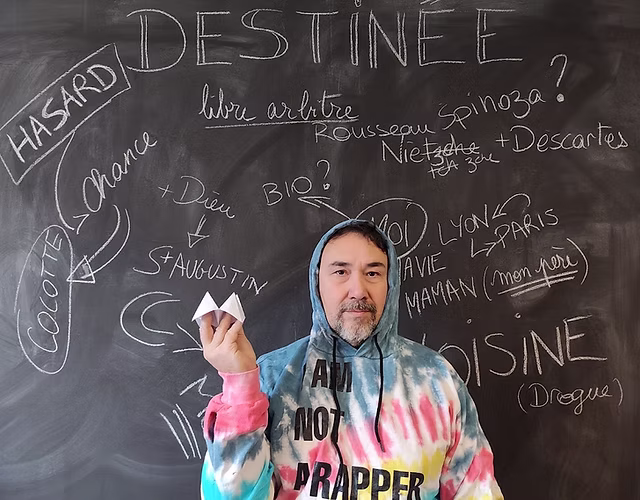 DESTINÉE
HASARD
libre arbitre
Rousseau Spinoza ?
+ Descartes
chance
+ Dieu
BIO ?
MOI
LYON
PARIS
St AUGUSTIN
MAMAN (mon père)
COCOTTE
OISINE
(Drogue)
I AM
NOT
A RAPPER